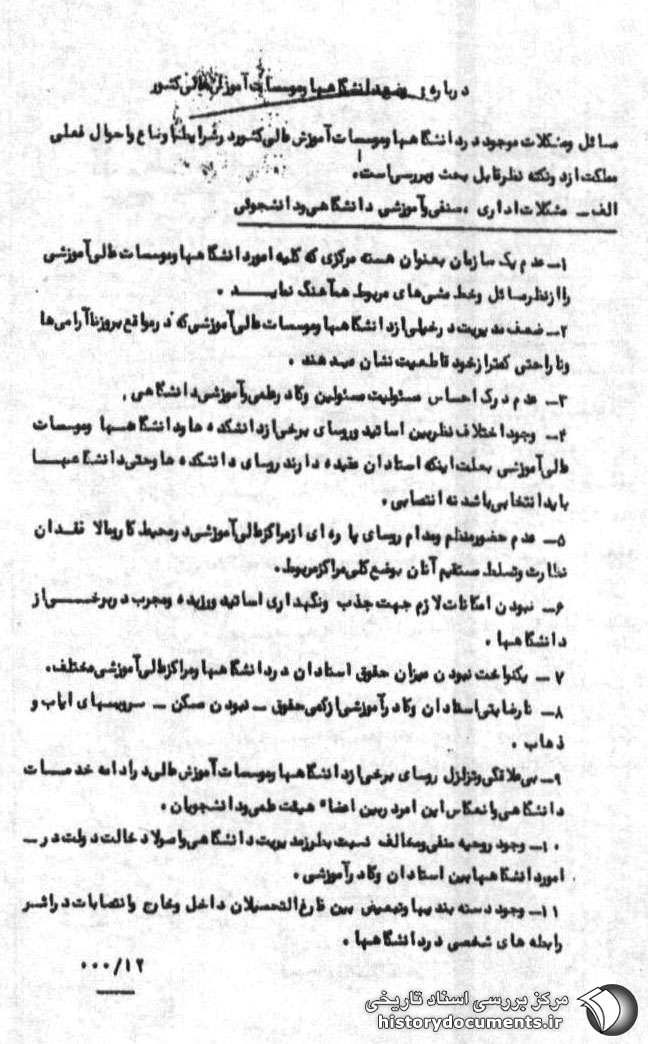 درباره وضع دانشگاهها و موسسات آموزش عالی کشور
مسائل و مشکلات موجود در دانشگاهها و موسسات آموزش عالی کشور در شرایط و اوضاع و احوال فعلی
مملکت از دو نکته نظر قابل بحث و بررسی است.
الف ــ مشکلات اداری ، صنفی و آموزشی دانشگاهی و دانشجوئی
۱ــ عدم یک سازمان بعنوان هسته مرکزی که کلیه امور دانشگاهها و موسسات عالی آموزشی
را از نظر مسائل و خط مشی های مربوط هم آهنگ نمایــــد .
۲ــ ضعف مدیریت در خیلی از دانشگاهها و موسسات عالی آموزشی که در مواقع بروز نا آرامی ها
و نا راحتی کمتر از خود قاطعیت نشان میدهند .
۳ــ عدم درک احساس مسئولیت مسئولین و کادر علمی و آموزشی دانشگاهی .
۴ــ وجود اختلاف نظر بین اساتید و روسای برخی از دانشکده ها و دانشگاهــها و موسسات
عالی آموزشی بعلت اینکه استادان عقیده دارند روسای دانشکده ها و حتی دانشگاهــا
باید انتخابی باشد نه انتصابی .
۵ــ عدم حضور منظم و مدام روسای پاره ای از مراکز عالی آموزشی در محیط کار و مالا فقدان
نظارت و تسلط مستقیم آنان بوضع کلی مراکز مربوط .
۶ــ نبودن امکانات لازم جهت جذب و نگهداری اساتید ورزیده و مجرب در برخــــی از
دانشگاهها .
۷ ــ یکنواخت نبودن میزان حقوق استادان در دانشگاهها و مراکز عالی آموزشی مختلف .
۸ــ نارضایتی استادان و کادر آموزشی از کمی حقوق ــ نبودن مسکن ــ سرویسهای ایاب و
ذهاب .
۹ــ بی علاقگی و تزلزل روسای برخی از دانشگاهها و موسسات آموزش عالی در ادامه خدمــــات
دانشگاهی و انعکاس این امر در بین اعضاء هیئت علمی و دانشجویان .
۱۰ــ وجود روحیه منفی و مخالف نسبت بطرز مدیریت دانشگاهی و اصولا دخالت دولت در ــ
امور دانشگاهها بین استادان و کادر آموزشی .
۱۱ــ وجود دسته بندیها و تبعیض بین فارغ التحصیلان داخل و خارج و انتصابات در اثــر
رابطه های شخصی در دانشگاهها .
۰۰۰/۱۲
مرکز بررسی اسناد تاریخی
historydocuments.ir